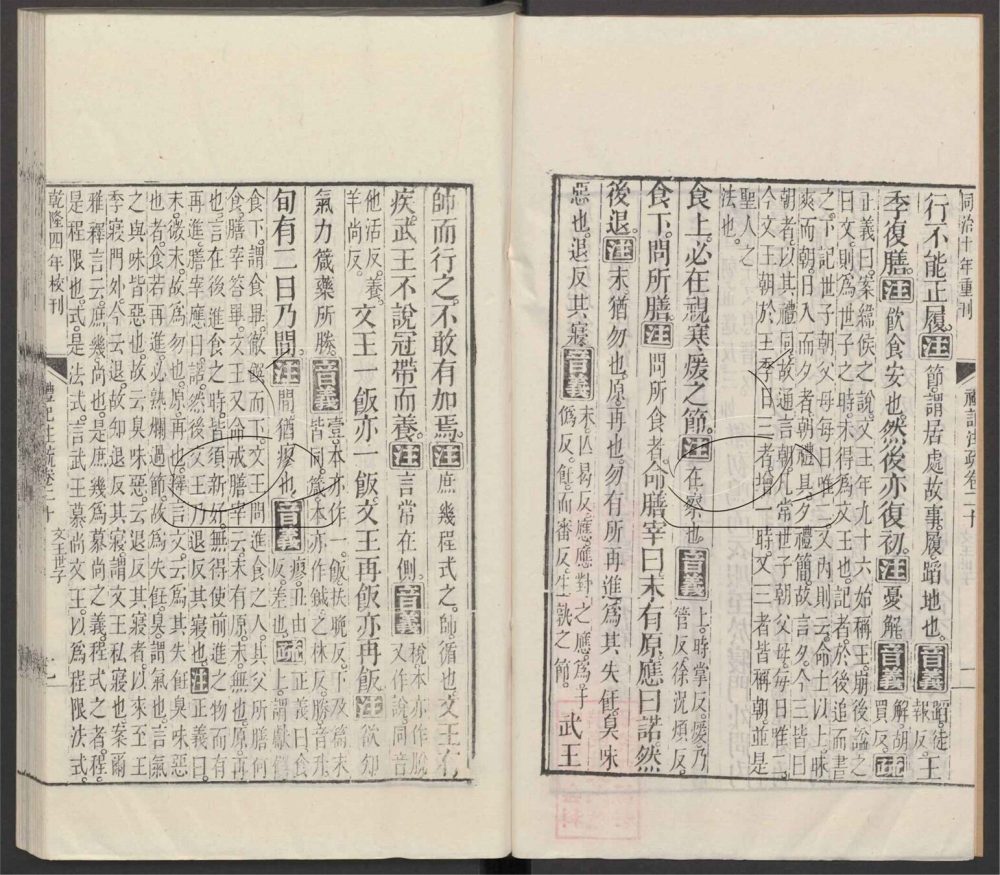 同治十年重刊
禮記注疏卷二十
行不能正履。注節。謂居處故事。履。蹈地也。音義蹈。徒報反。王
季復膳。注飲食安也。然後亦復初。注憂解音義解胡買反。疏
正義曰。案緯侯之說。文王年九十六始稱王。崩後諡之
曰文。則為世子之時。未得為文王也。記者於後追而書
之。下記世子朝父母每日唯二。又內則云。命士以上。昧
爽而朝。日入而夕。夕者朝禮具。夕禮簡。故言夕。今三皆曰
朝者。以其禮同。故通言朝。凡常世子朝父母。每日唯二。
今文王朝於王季。日三者增一時。又三者皆稱朝。並是
聖人之
法也。
食上。必在視寒煖之節。注在察也。音義上。時掌反。煖乃管反。徐況煩反。
食下。問所膳。注問所食者。命膳宰曰。末有原。應曰諾。然
後退。注末猶勿也。原。再也。勿有所再進。為其失飪。臭味
惡也。退。反其寢。音義末亾曷反。應。應對之應。為。于偽反。飪。而審反。生孰之節。武王
師而行之。不敢有加焉。注庶幾程式之。師循也。文王有
疾。武王不說冠帶而養。注言常在側。音義稅本亦作脫又作說。同音
他活反。養。
羊尚反。文王一飯亦一飯。文王再飯亦再飯。注欲知
氣力箴藥所勝。音義壹本亦作一。飯扶晚反。下及篇末皆同。箴本亦作鍼之林反。勝音升。
旬有二日乃間。注間猶瘳也。音義瘳。丑由反。差也。疏正義曰。食上。謂獻饌
食下。謂食畢徹饌而下。文王問進食之人。其父所膳何
食。膳宰答畢。文王又命戒膳宰云。末有原。末。無也。原。再
也。言在後進食之時。皆須新好。無得使前進之物而有
再進。膳宰應曰諾。然後文王乃退反其寢也。注正義曰。
末。微末。故為勿也。原。再也。釋言文。云為其失飪臭味惡
也者。食若再進。必熟爛過節。故為失飪。臭。謂氣也。言氣
之與味皆惡也。故云臭味惡。云退反其寢者。以來至王
季寢門外。今云退。故知退反其寢。謂文王私寢也。案爾
雅釋言云。庶幾尚也。是庶幾為慕尚之義。程式之者。程
是程限也。式。是法式。言武王慕尚文王。以為程限法式。
乾隆四年校刊
禮記注疏卷二十
文王世子